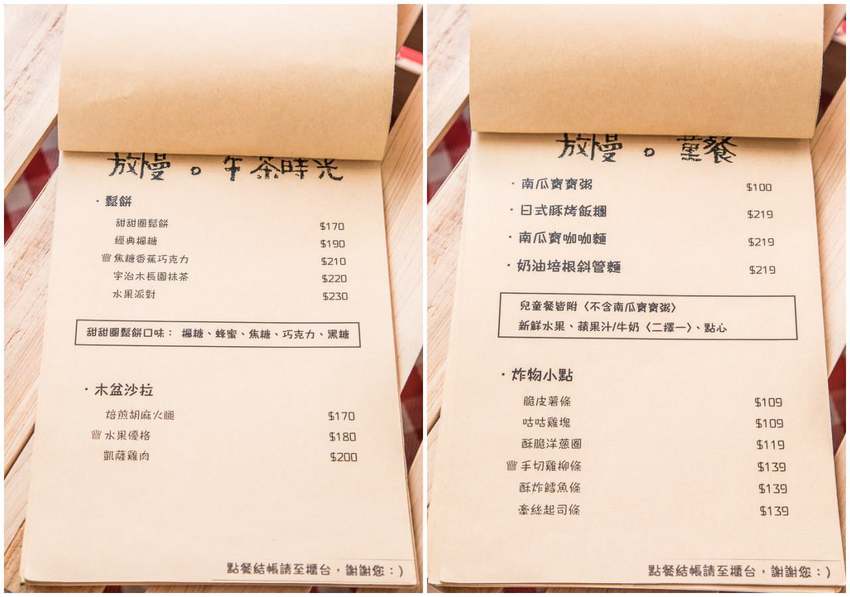 放慢。午茶時光
・鬆餅
甜甜圈鬆餅 $170
經典楓糖 $190
焦糖香蕉巧克力 $210
宇治木長園抹茶 $220
水果派對 $230
甜甜圈鬆餅口味： 楓糖、蜂蜜、焦糖、巧克力、黑糖
・木盆沙拉
焙煎胡麻火腿 $170
水果優格 $180
凱薩雞肉 $200
點餐結帳請至櫃台，謝謝您：)
放慢。童餐
・南瓜寶寶粥 $100
・日式豚烤飯糰 $219
・南瓜寶咖咖麵 $219
・奶油培根斜管麵 $219
兒童餐皆附〈不含南瓜寶寶粥〉
新鮮水果、蘋果汁/牛奶〈二擇一〉、點心
・炸物小點
脆皮薯條 $109
咕咕雞塊 $109
酥脆洋蔥圈 $119
手切雞柳條 $139
酥炸鱈魚條 $139
牽絲起司條 $139
點餐結帳請至櫃台，謝謝您：)